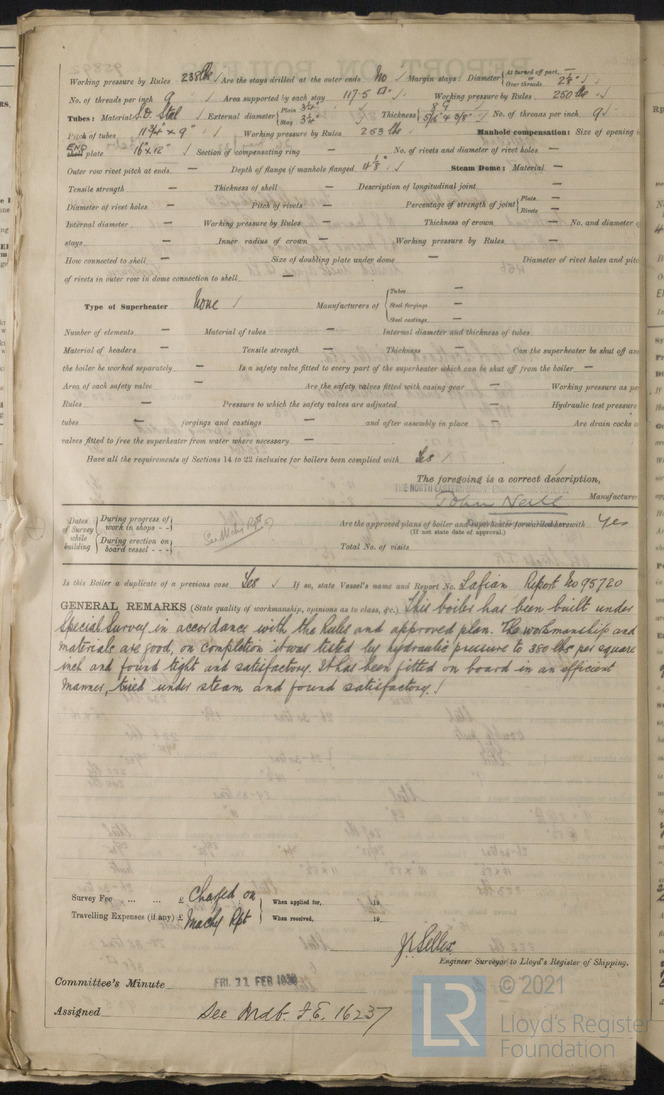 Working pressure by Rules 238 lbs / Are the stays drilled at the outer ends No / Margin stays: Diameter { At turned off part, — or Over threads 2 1/8" /
No. of threads per inch 9 / Area supported by each stay 117.5 □" / Working pressure by Rules 250 lbs /
Tubes: Material S.D. Steel / External diameter { Plain 3 1/4" Stay 3 1/4" Thickness { 8 G 5/16" & 3/8" / No. of threads per inch 9 /
Pitch of tubes 11 3/4" x 9" / Working pressure by Rules 253 lbs / Manhole compensation: Size of opening i
END shell plate 16" x 12" / Section of compensating ring — No. of rivets and diameter of rivet holes —
Outer row rivet pitch at ends — Depth of flange if manhole flanged / Steam Dome: Material —
Tensile strength — Thickness of shell — Description of longitudinal joint —
Diameter of rivet holes — Pitch of rivets — Percentage of strength of joint { Plate — Rivets —
Internal diameter — Working pressure by Rules — Thickness of crown — No. and diameter o
stays — Inner radius of crown — Working pressure by Rules —
How connected to shell — Size of doubling plate under dome — Diameter of rivet holes and pitc
of rivets in outer row in dome connection to shell —
Type of Superheater None / Manufacturers of { Tubes — Steel forgings — Steel castings —
Number of elements — Material of tubes — Internal diameter and thickness of tubes
Material of headers — Tensile strength — Thickness — Can the superheater be shut off an
the boiler be worked separately — Is a safety valve fitted to every part of the superheater which can be shut off from the boiler —
Area of each safety valve — Are the safety valves fitted with easing gear — Working pressure as pe
Rules — Pressure to which the safety valves are adjusted — Hydraulic test pressure
tubes — forgings and castings — and after assembly in place — Are drain cocks o
valves fitted to free the superheater from water where necessary —
Have all the requirements of Sections 14 to 22 inclusive for boilers been complied with Yes /
The foregoing is a correct description,
John Neill Manufacturer
Dates of Survey while building { During progress of work in shops - - } { During erection on board vessel - - - } See Mchy Rpt
Are the approved plans of boiler and superheater forwarded herewith Yes
(If not state date of approval.)
Total No. of visits
Is this Boiler a duplicate of a previous case Yes / If so, state Vessel's name and Report No. Lafian Report No 95720
GENERAL REMARKS (State quality of workmanship, opinions as to class, &c.) This boiler has been built under
Special Survey in accordance with the Rules and approved plan. The workmanship and
materials are good, on completion it was tested by hydraulic pressure to 380 lbs per square
inch and found tight and satisfactory. It has been fitted on board in an efficient
manner, tried under steam and found satisfactory. /
Survey Fee ... ... £ Charged on { When applied for, 19
Travelling Expenses (if any) £ Machy Rpt { When received, 19
Engineer Surveyor to Lloyd's Register of Shipping.
Committee's Minute FRI. 21 FEB 1936
Assigned See Mdb. F.E. 16237
LR © 2021
Lloyd's Register
Foundation